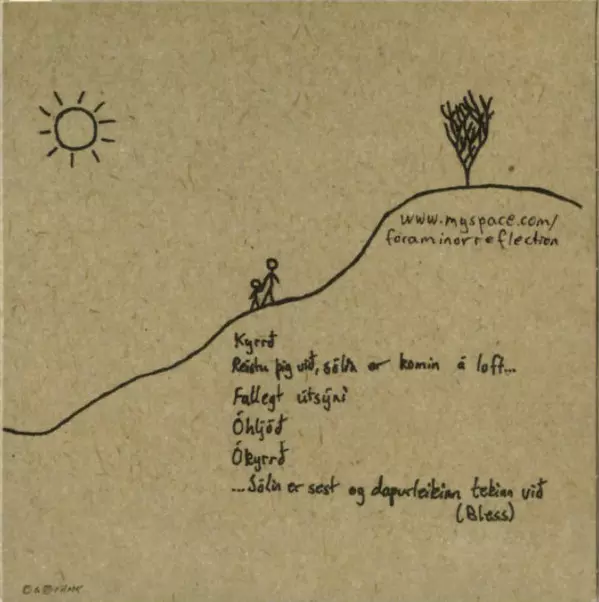 www.myspace.com/
foraminorreflection
Kyrrð
Reistu þig við, sólin er komin á loft...
Fallegt útsýni
Óhljóð
Ókyrrð
...Sólin er sest og dapurleikinn tekinn við
(Bless)